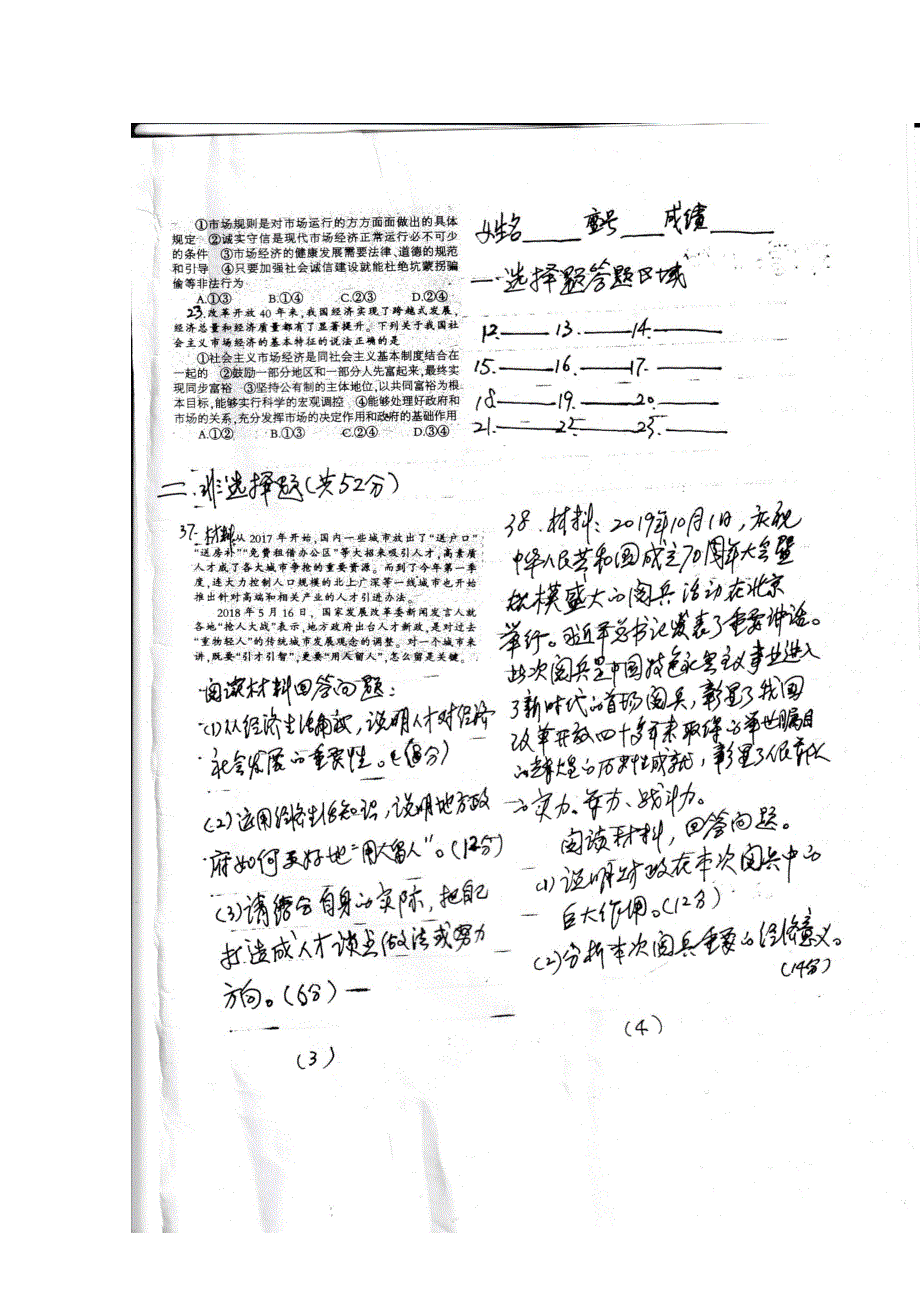 ①市场规则是对市场运行的方方面面做出的具体
规定 ②诚实守信是现代市场经济正常运行必不可少
的条件 ③市场经济的健康发展需要法律、道德的规范
和引导 ④只要加强社会诚信建设就能杜绝坑蒙拐骗
偷等非法行为
A.①③ B.①④ C.②③ D.②④
23.改革开放 40 年来,我国经济实现了跨越式发展,
经济总量和经济质量都有了显著提升。下列关于我国社
会主义市场经济的基本特征的说法正确的是
①社会主义市场经济是同社会主义基本制度结合在
一起的 ②鼓励一部分地区和一部分人先富起来,最终实
现同步富裕 ③坚持公有制的主体地位,以共同富裕为根
本目标,能够实行科学的宏观调控 ④能够处理好政府和
市场的关系,充分发挥市场的决定作用和政府的基础作用
A.①② B.①③ C.②④ D.③④
姓名____ 座号___ 成绩____
一 选择题答题区域
12.____ 13.____ 14.____
15.____ 16.____ 17.____
18.____ 19.____ 20.____
21.____ 22.____ 23.____
二.非选择题(共52分)
37.材料:从 2017 年开始,国内一些城市放出了“送户口”
“送房补”“免费租借办公区”等大招来吸引人才,高素质
人才成了各大城市争抢的重要资源。而到了今年第一季
度,连大力控制人口规模的北上广深等一线城市也开始
推出针对高端和相关产业的人才引进办法。
2018 年 5 月 16 日,国家发展改革委新闻发言人就
各地“抢人大战”表示,地方政府出台人才新政,是对过去
“重物轻人”的传统城市发展观念的调整。对一个城市来
讲,既要“引才引智”,更要“用人留人”,怎么留是关键。
阅读材料回答问题:
(1)从经济生活角度,说明人才对经济
社会发展的重要性。(8分)
(2)运用经济生活知识,说明地方政
府如何更好地“用人留人”。(12分)
(3)请结合自身的实际,把自己
打造成人才谈点做法或努力
方向。(6分)
(3)
38.材料:2019年10月1日,庆祝
中华人民共和国成立70周年大会暨
规模盛大的阅兵活动在北京
举行。习近平总书记发表了重要讲话。
此次阅兵是中国特色社会主义事业进入
了新时代的首场阅兵,彰显了我国
改革开放四十多年来取得的举世瞩目
的历史性成就,彰显了人民军队
的实力、战斗力。
阅读材料,回答问题。
(1)说明财政在本次阅兵中的
巨大作用。(12分)
(2)分析本次阅兵重要的经济意义。
(14分)
(4)